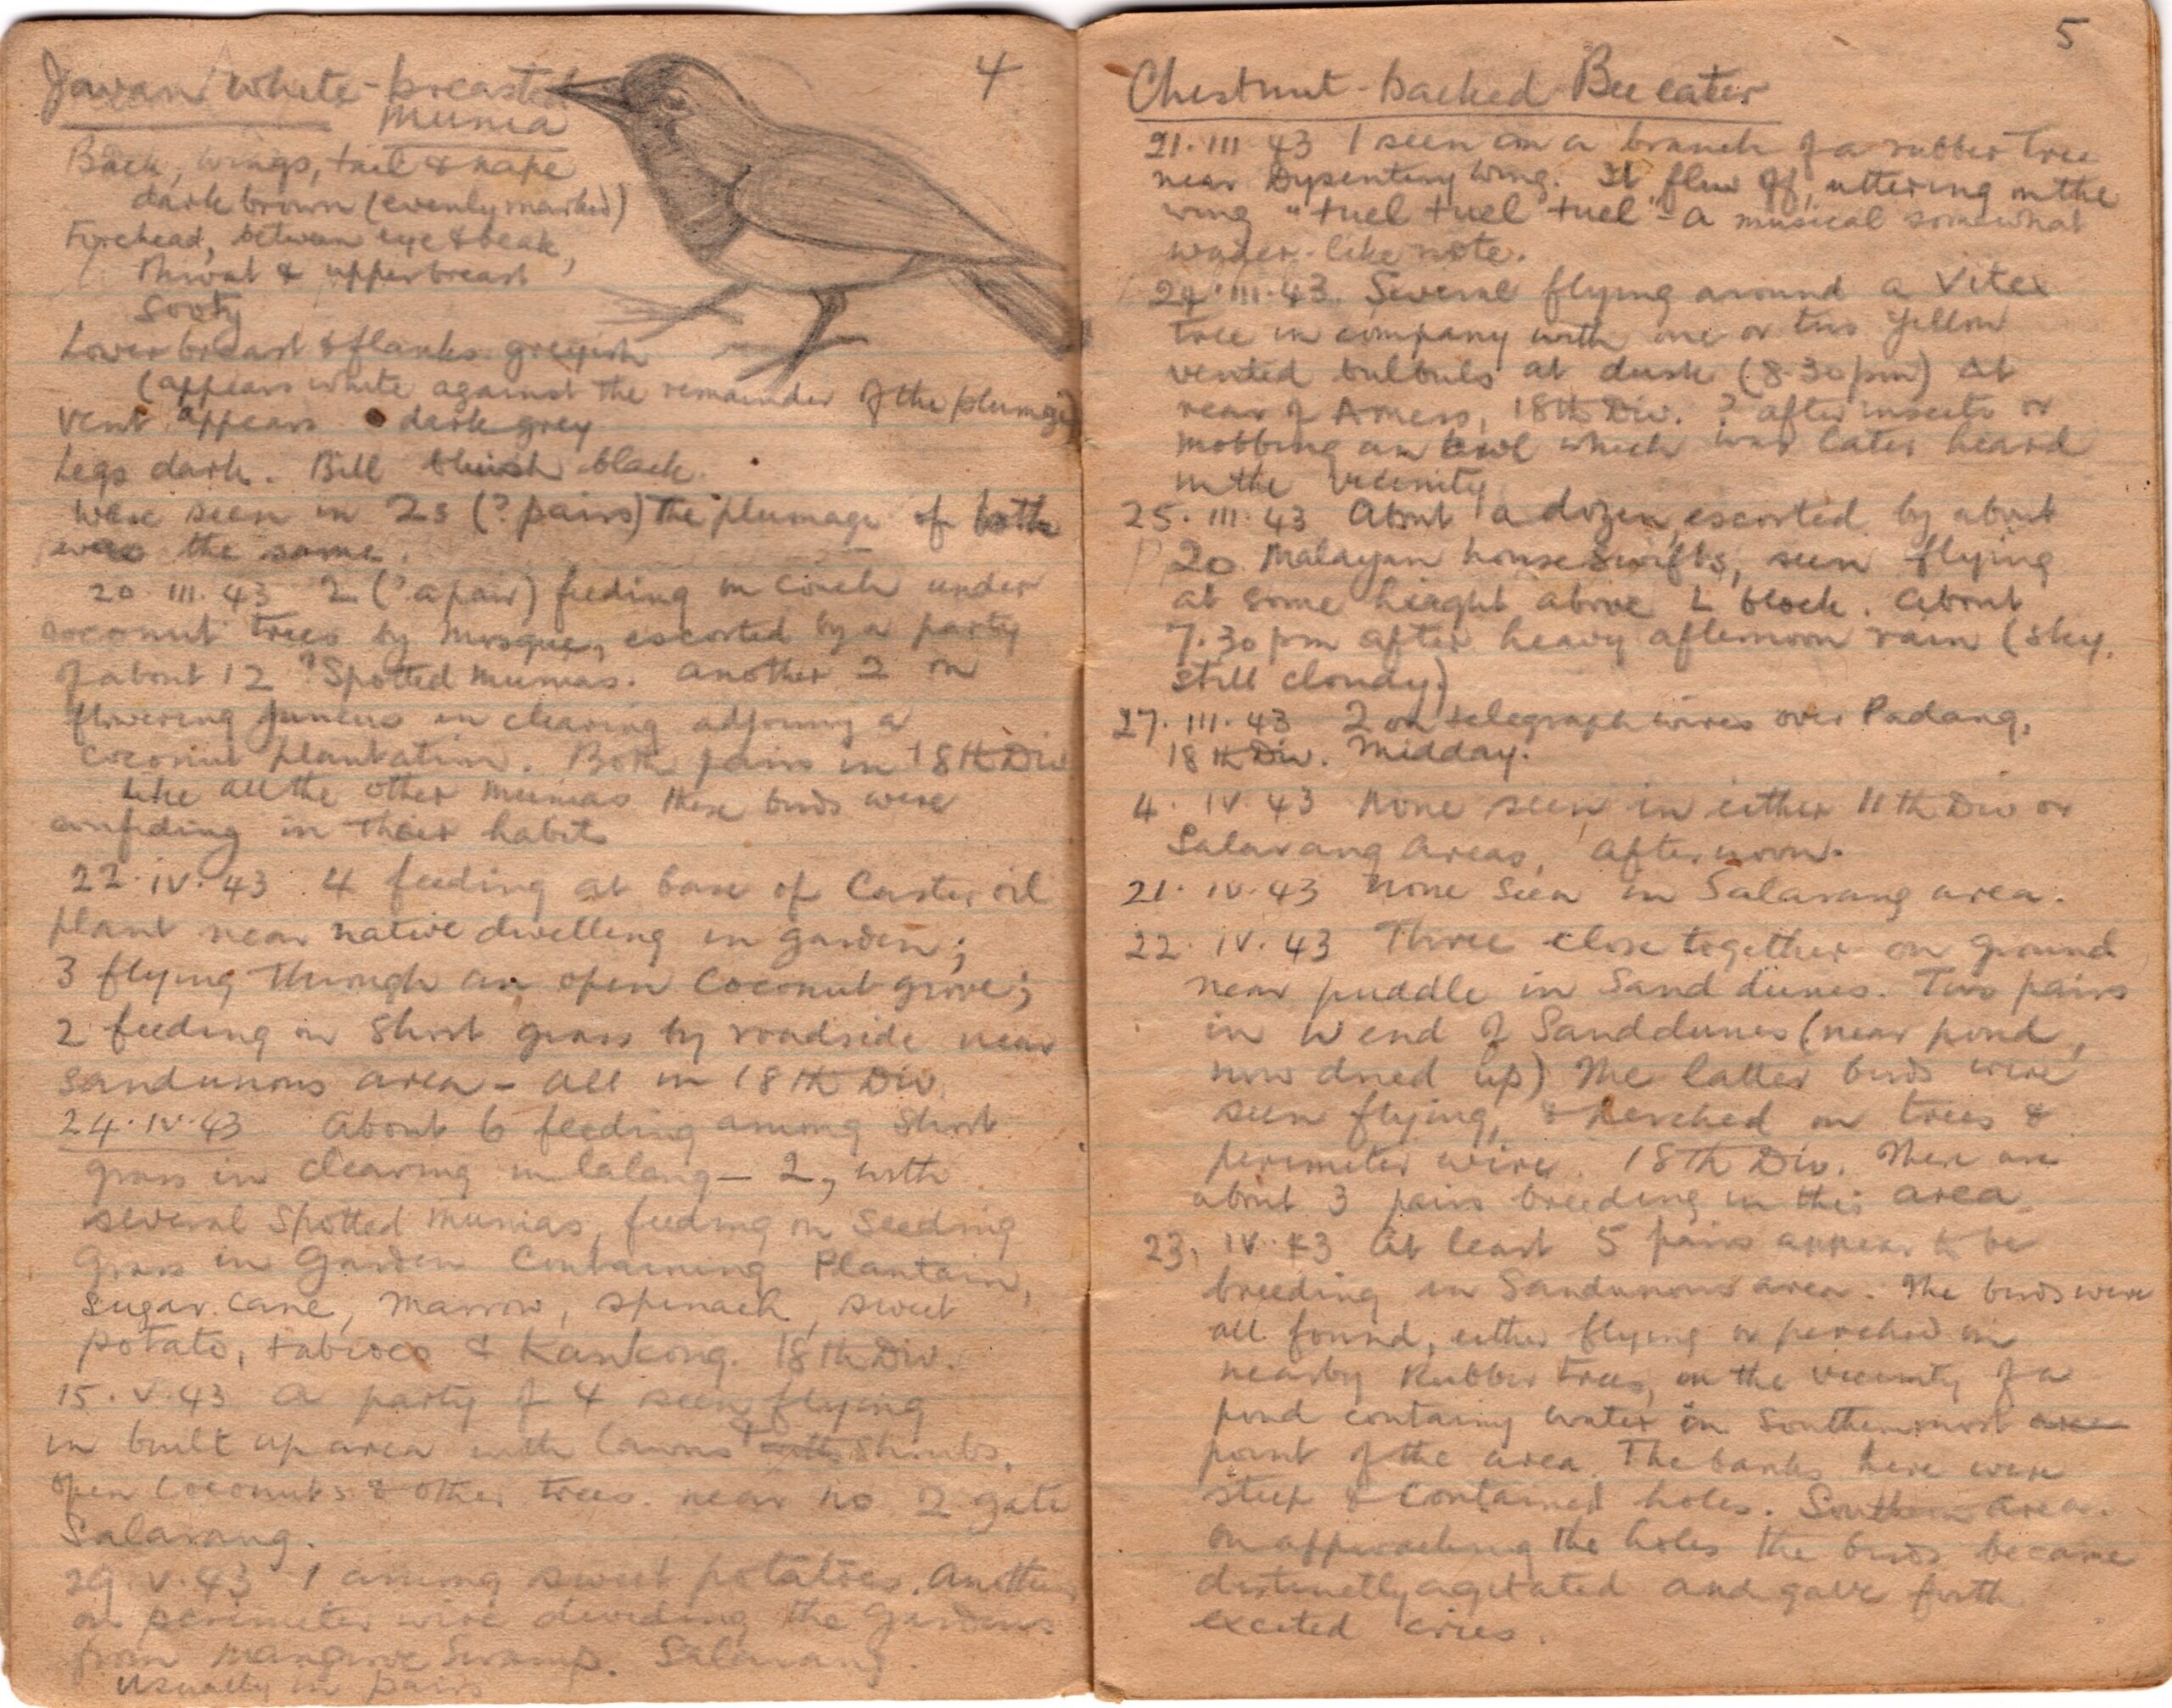 4
Javan White-breasted
Munia
Back, wings, tail & nape
dark brown (evenly marked)
Forehead, between eye & beak,
throat & upper breast
sooty
Lower breast & flanks greyish
(appears white against the remainder of the plumage)
Vent appears dark grey
Legs dark. Bill bluish black.
Were seen in 2s (? pairs) the plumage of both
was the same.
20. III. 43 2 (? a pair) feeding on couch under
coconut trees by mosque, escorted by a party
of about 12 ?Spotted munias. Another 2 on
flowering juncus in clearing adjoining a
coconut plantation. Both pairs in 18th Div
Like all the other munias these birds were
confiding in their habits
22. IV. 43 4 feeding at base of Castor oil
plant near native dwelling in garden;
3 flying through an open Coconut grove;
2 feeding on short grass by roadside near
sandunous area - all in 18th Div.
24. IV. 43 About 6 feeding among short
grass in clearing in lalang - 2, with
several Spotted munias, feeding on seeding
grass in Garden Containing Plantain,
sugar cane, marrow, spinach, sweet
potato, tabioco & Kankong. 18th Div.
15. V. 43 A party of 4 seen flying
in built up area with lawns & shrubs,
open Coconuts & other trees. near No 2 gate
Salarang.
29. V. 43 1 among sweet potatoes. Another
on perimeter wire dividing the gardens
from mangrove swamp. Salarang.
Usually in pairs
5
Chestnut-backed Bee eater
21. III 43 1 seen on a branch of a rubber tree
near Dysentery Wing. It flew off, uttering on the
wing "tuel tuel tuel" - a musical somewhat
wader-like note.
24. III. 43. Several flying around a Vitex
tree in company with one or two Yellow
vented bulbuls at dusk (8.30 pm) at
rear of Amess, 18th Div. ? after insects or
mobbing an owl which was later heard
in the vicinity
25. III. 43 About a dozen, escorted by about
20 Malayan house swifts, seen flying
at some height above L block. About
7.30 pm after heavy afternoon rain (sky
still cloudy)
27. III. 43 2 on telegraph wires over Padang,
18th Div. Midday.
4. IV. 43 None seen in either 11th Div or
Salarang Areas, afternoon.
21. IV. 43 None seen in Salarang area.
22. IV. 43 Three close together on ground
near puddle in Sand dunes. Two pairs
in W end of Sanddunes (near pond,
now dried up) The latter birds were
seen flying, & perched on trees &
perimeter wire. 18th Div. There are
about 3 pairs breeding in this area.
23. IV. 43 At least 5 pairs appear to be
breeding in Sandunous area. The birds were
all found, either flying or perched in
nearby Rubber trees, in the vicinity of a
pond containing water in Southernmost are
point of the area. The banks here were
steep & contained holes. Southern area.
On approaching the holes the birds became
distinctly agitated and gave forth
excited cries.